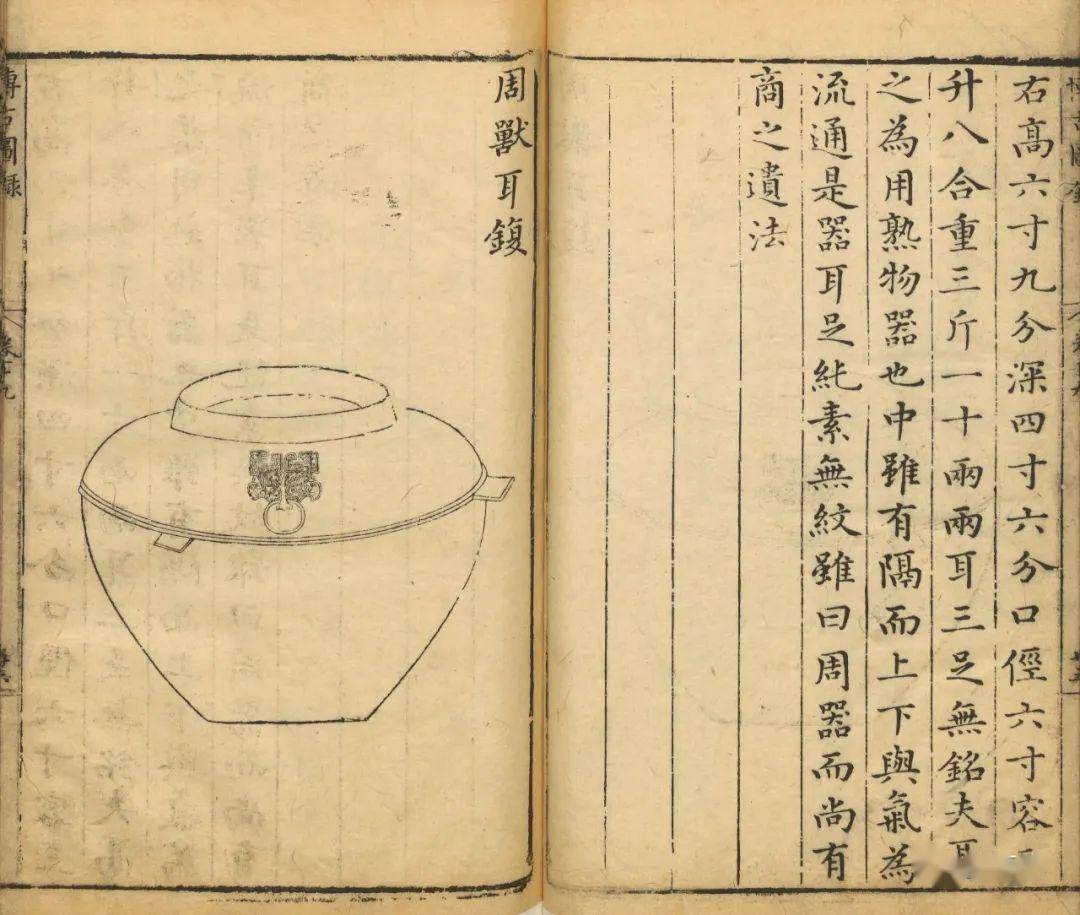 右高六寸九分深四寸六分口俓六寸容
升八合重三斤一十兩兩耳三足無銘夫
之為用熟物器也中雖有隔而上下與氣為
流通是器耳足純素無紋雖曰周器而尚有
商之遺法
周獸耳鍑
博古圖録
卷十九